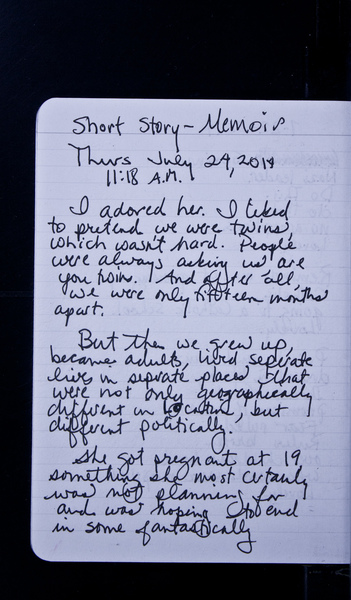 Short Story - Memoir
Thurs July 24, 2014
11:18 A.M.
I adored her. I liked
to pretend we were twins
which wasn't hard. People
were always asking us are
you twins. And after all,
we were only fifteen months
apart.
But then we grew up,
became adults, lived seperate
lives in seprate places that
were not only geographically
different in location, but
different politically.
She got pregnant at 19
something she most certainly
was not planning for
and was hoping to end
in some fantastically